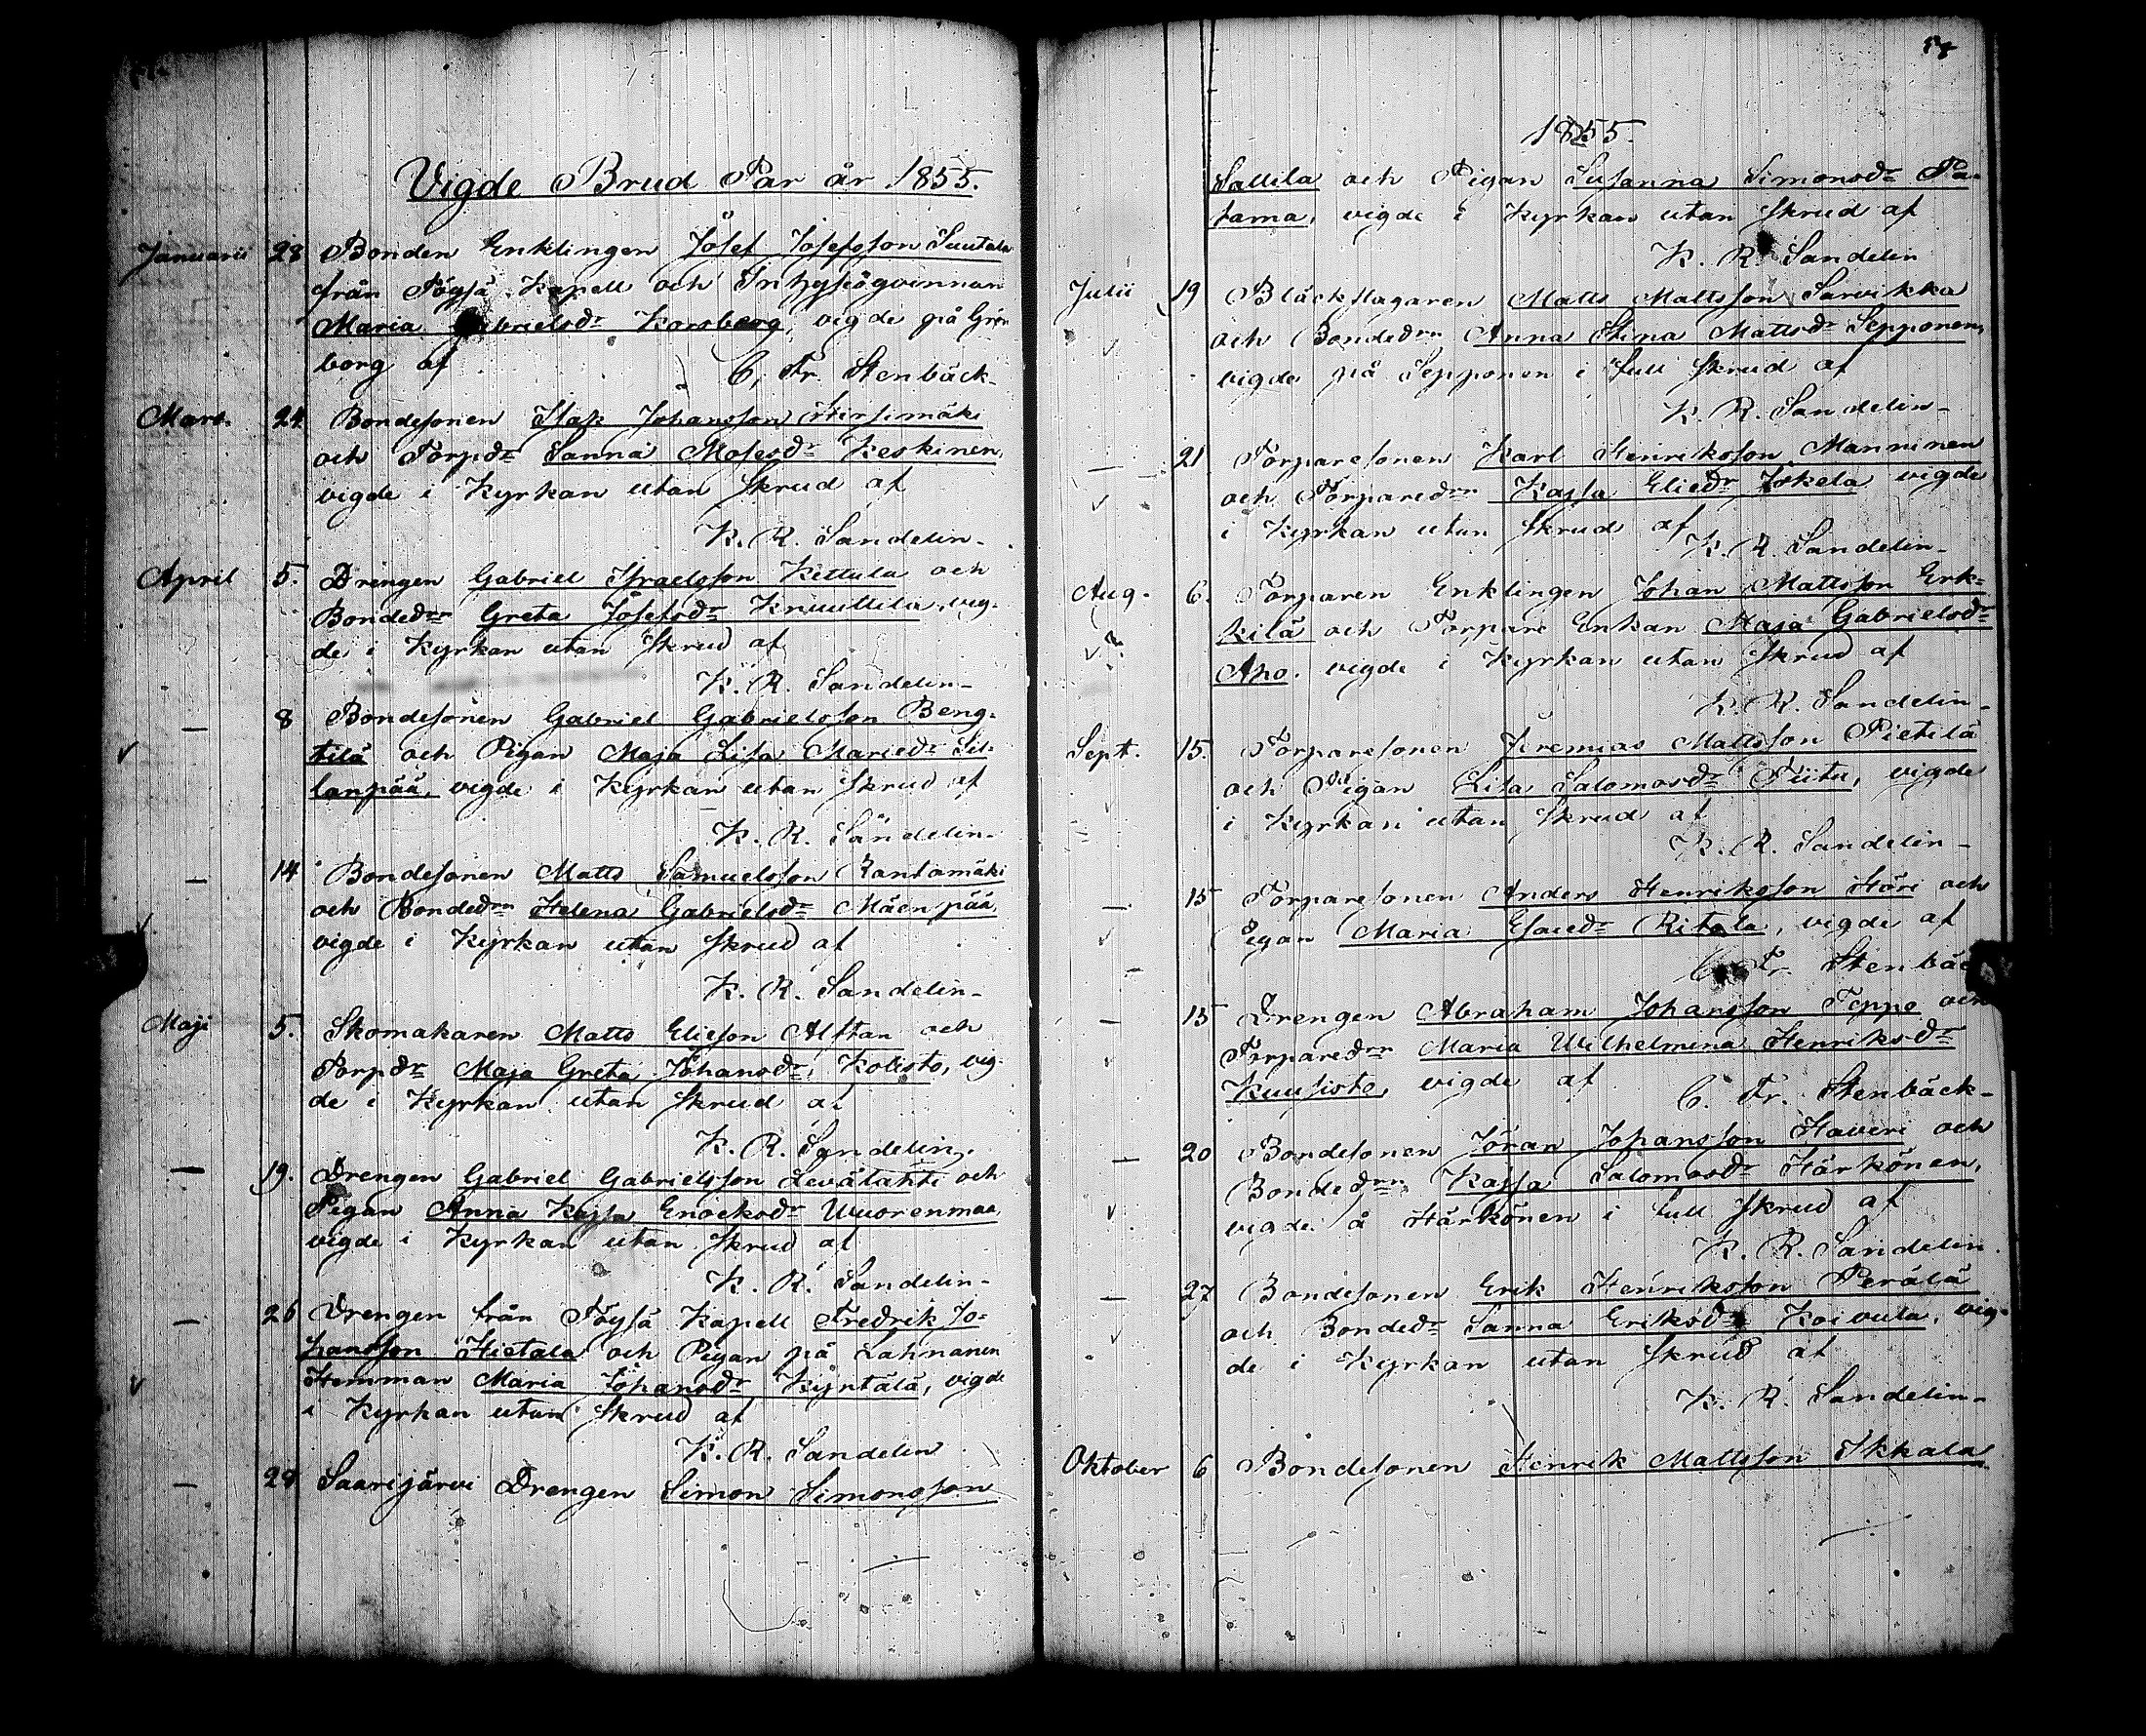 Vigde Brud Par år 1855.
Januarii 28 Bonden Enklingen Josef Josefsson Suutala
från Töysä Kapell och Inhyseqvinnan
Maria Gabrielsdr Korsberg, vigde på Grön
borg af
C. Fr. Stenbäck
Mars. 24 Bondesonen Isak Johansson Hirsimäki
och Torpdr Sanna Mosesdr Keskinen,
vigde i Kyrkan utan skrud af
K. R. Sandelin
April 5. Drengen Gabriel Israelsson Kettula och
Bondedrn Greta Josefsdr Knuuttila, vig-
de i Kyrkan utan skrud af
K. R. Sandelin
— 8 Bondesonen Gabriel Gabrielsson Beng-
tilä och Pigan Maja Lisa Mariedr Sil-
lanpää, vigde i Kyrkan utan skrud af
K. R. Sandelin
— 14 Bondesonen Matts Samuelsson Rantamäki
och Bondedrn Helena Gabrielsdr Mäenpää
vigde i Kyrkan utan skrud af
K. R. Sandelin
Maji 5. Skomakaren Matts Elieson Alftan och
Torpdr Maja Greta Johansdr Kolisto, vig-
de i Kyrkan utan skrud af
K. R. Sandelin
— 19. Drengen Gabriel Gabrielsson Levälahti och
Pigan Anna Kajsa Enocksdr Wuorenmaa
vigde i Kyrkan utan skrud af
K. R. Sandelin
— 26 Drengen från Töysä Kapell Fredrik Jo-
hansson Hietala och Pigan på Lahnanen
Hemman Maria Johansdr Kyntälä, vigde
i Kyrkan utan skrud af
K. R. Sandelin
— 28 Saarijärvi Drengen Simon Simonsson
1855.
Sallila och Pigan Susanna Simonsdr Pa-
tama, vigde i Kyrkan utan skrud af
K. R. Sandelin
Julii 19 Bläckslagaren Matts Mattsson Sarvikka
och Bondedrn Anna Stina Mattsdr Sepponen,
vigde på Sepponen i full skrud af
K. R. Sandelin
— 21 Torparesonen Karl Henriksson Manninen
och Torparedrn Kajsa Eliedr Jokela vigde
i Kyrkan utan skrud af
K. R. Sandelin
Aug. 6. Torparen Enklingen Johan Mattsson Erk-
kilä och Torpare Enkan Maja Gabrielsdr
Aho. vigde i Kyrkan utan skrud af
K. R. Sandelin
Sept. 15. Torparesonen Jeremias Mattsson Pietilä
och Pigan Lisa Salomosdr Piitu, vigde
i Kyrkan utan skrud af
K. R. Sandelin
— 15 Torparesonen Anders Henriksson Häri och
Pigan Maria Esaiedr Ritola, vigde af
C. Fr. Stenbäck
— 15 Drengen Abraham Johansson Teppo och
Torparedrn Maria Wilhelmina Henriksdr
Kuusisto, vigde af
C. Fr. Stenbäck
— 20 Bondesonen Jöran Johansson Haveri och
Bondedrn Kajsa Salomosdr Härkönen,
vigde å Härkönen i full skrud af
K. R. Sandelin
— 27 Bondesonen Erik Henriksson Perälä
och Bondedr Sanna Eriksdr Koivula, vig-
de i Kyrkan utan skrud af
K. R. Sandelin
Oktober 6 Bondesonen Henrik Mattsson Ikkala